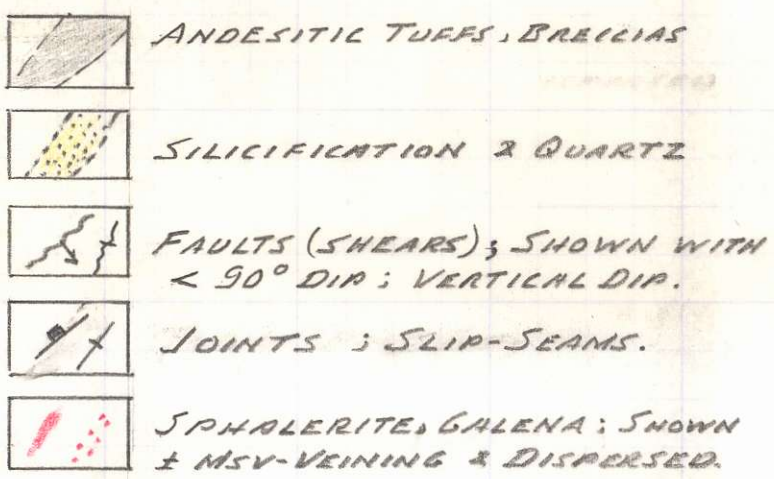 ANDESITIC TUFFS, BRECCIAS
SILICIFICATION & QUARTZ
FAULTS (SHEARS); SHOWN WITH
< 90° DIP; VERTICAL DIP.
JOINTS ; SLIP-SEAMS.
SPHALERITE, GALENA; SHOWN
± MSV-VEINING & DISPERSED.